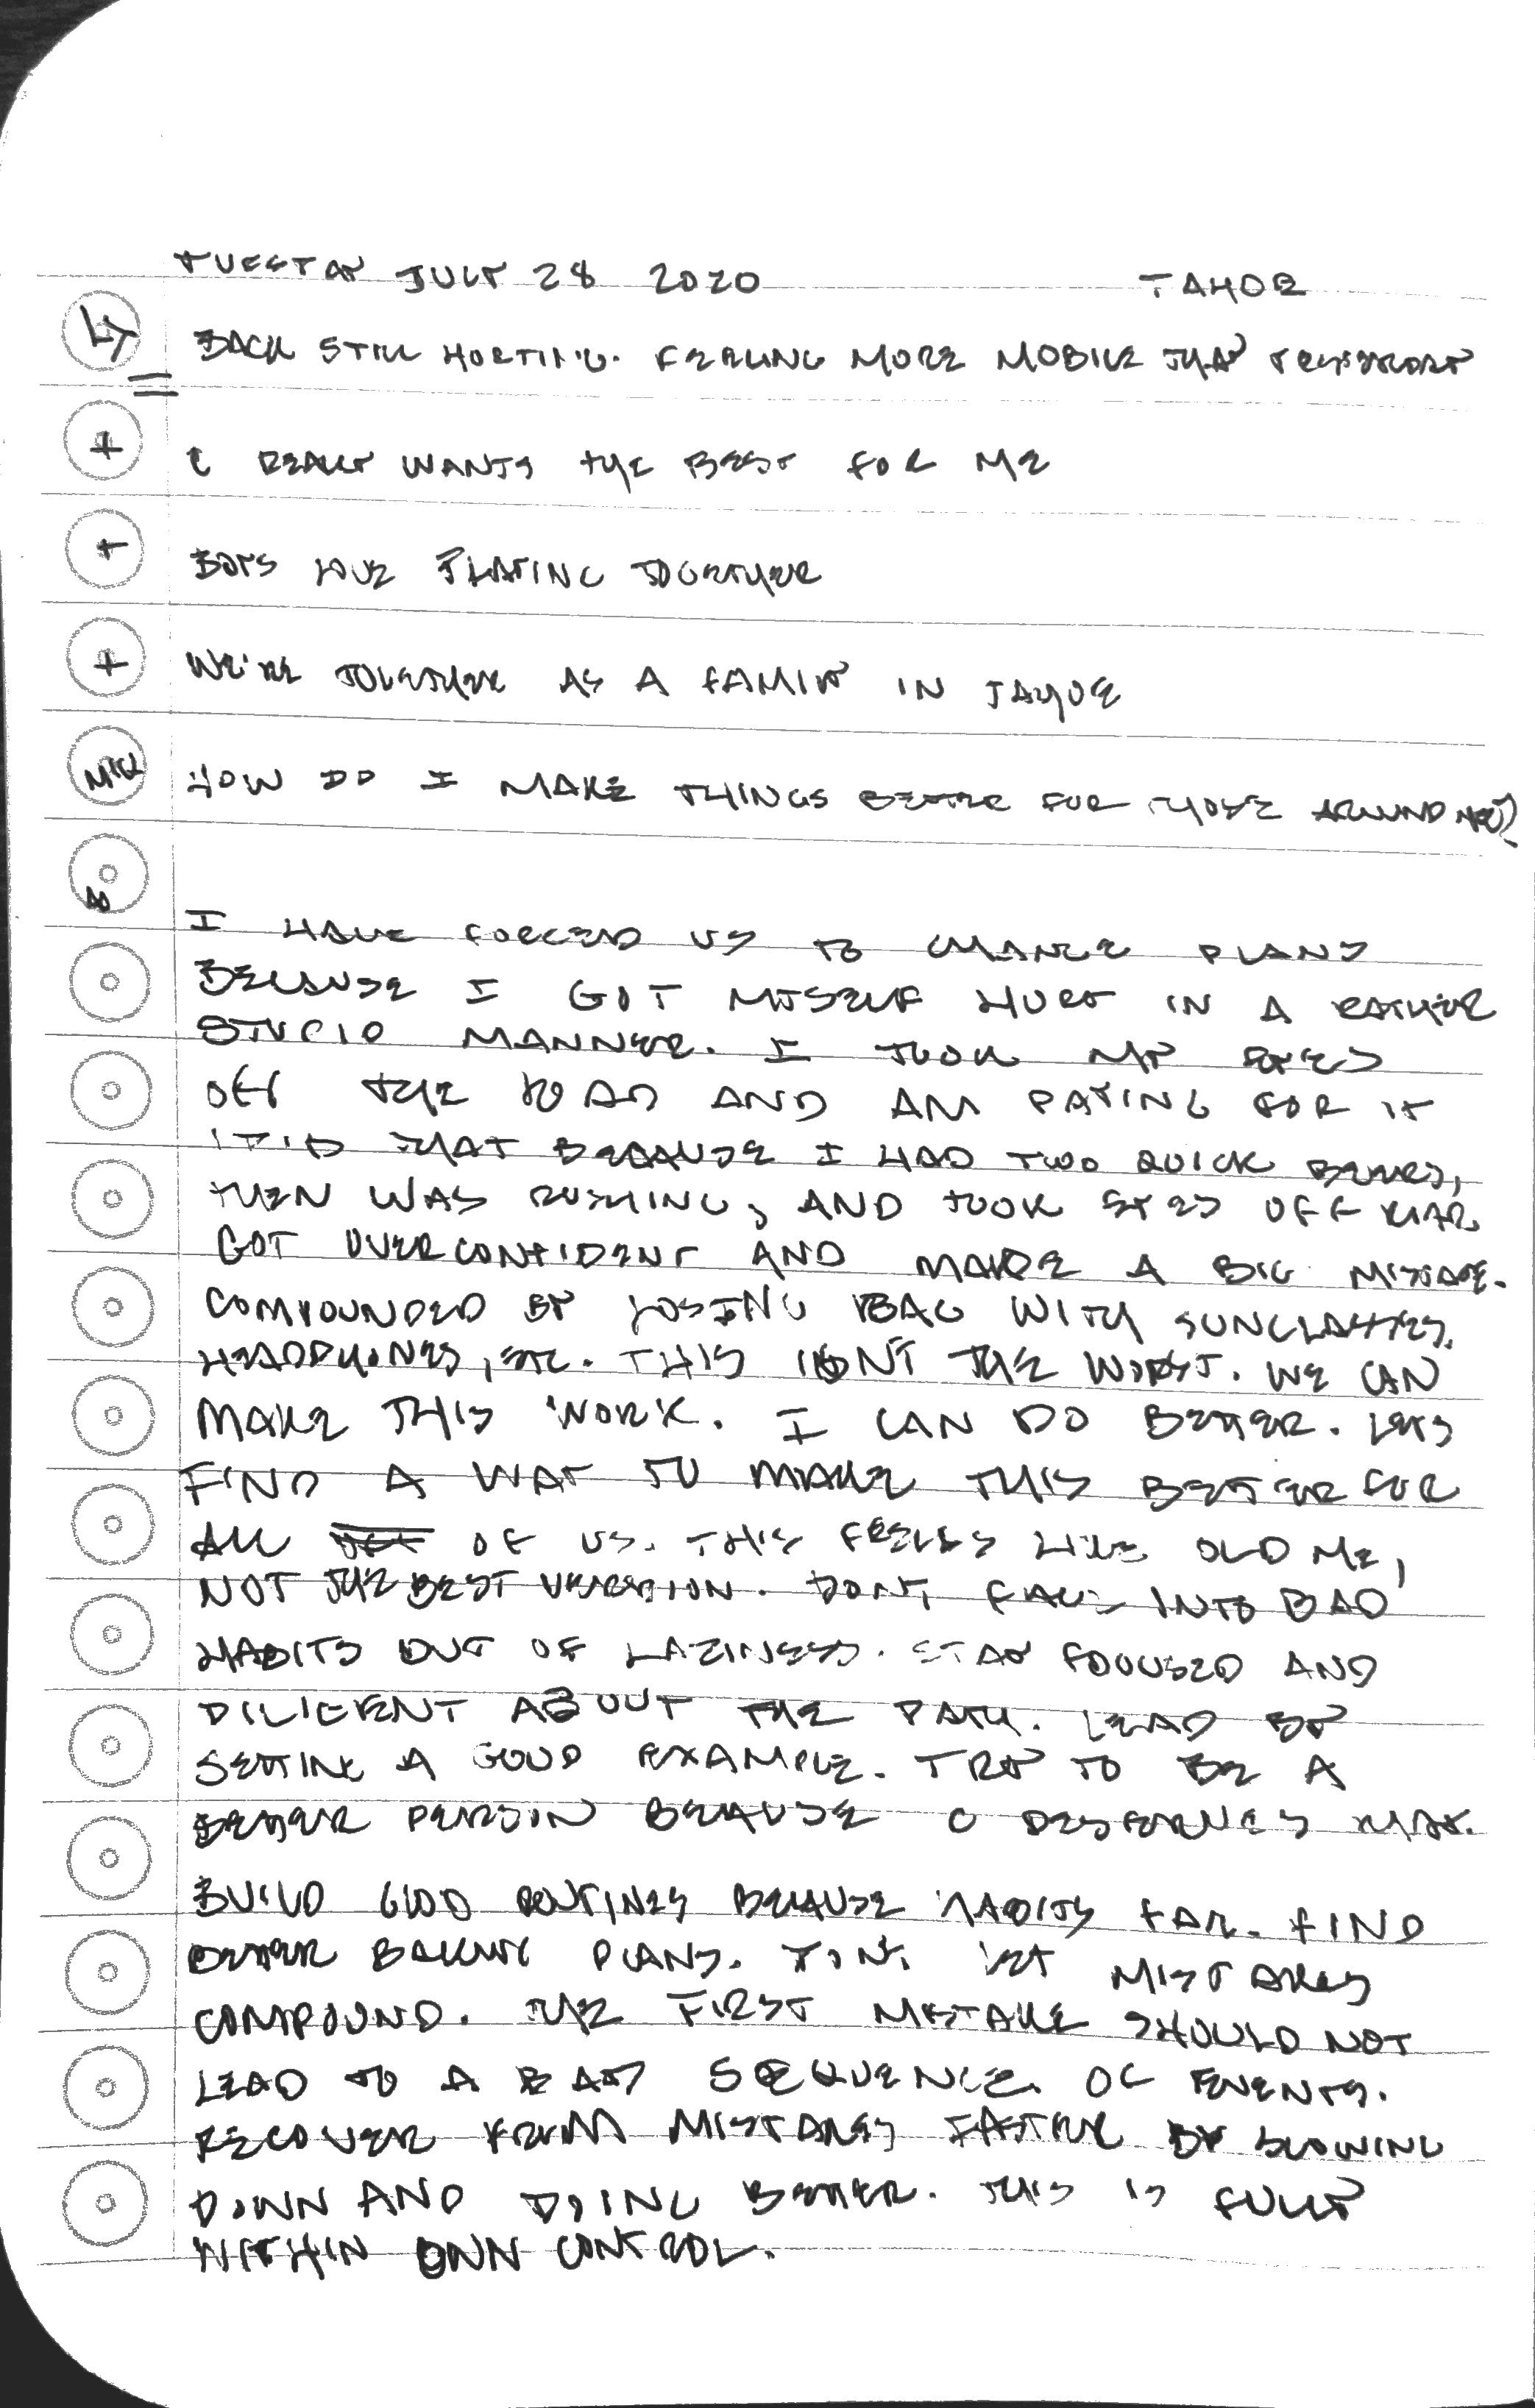 TUESDAY JULY 28 2020 TAHOE
LT BACK STILL HURTING. FEELING MORE MOBILE THAN YESTERDAY
+ C REALLY WANTS THE BEST FOR ME
+ BOYS LOVE PLAYING TOGETHER
+ WE'RE TOGETHER AS A FAMILY IN TAHOE
HOW DO I MAKE THINGS BETTER FOR THOSE AROUND ME?
I HAVE FORCED US TO CHANGE PLANS
BECAUSE I GOT MYSELF HURT IN A RATHER
STUPID MANNER. I TOOK MY EYES
OFF THE ROAD AND AM PAYING FOR IT
I DID THAT BECAUSE I HAD TWO QUICK BEERS,
THEN WAS RUSHING, AND TOOK EYES OFF
GOT OVERCONFIDENT AND MADE A BIG MISTAKE.
COMPOUNDED BY LOSING BAG WITH SUNGLASSES,
HEADPHONES, ETC. THIS ISN'T THE WORST. WE CAN
MAKE THIS WORK. I CAN DO BETTER. LETS
FIND A WAY TO MAKE THIS BETTER FOR
ALL OF US. THIS FEELS LIKE OLD ME,
NOT THE BEST VERSION. DON'T FALL INTO BAD
HABITS OUT OF LAZINESS. STAY FOCUSED AND
DILIGENT ABOUT THE PATH. LEAD BY
SETTING A GOOD EXAMPLE. TRY TO BE A
BETTER PERSON BECAUSE C DESERVES THAT.
BUILD GOOD ROUTINES BECAUSE HABITS FAIL. FIND
BETTER BACKUP PLANS. DON'T LET MISTAKES
COMPOUND. THE FIRST MISTAKE SHOULD NOT
LEAD TO A BAD SEQUENCE OF EVENTS.
RECOVER FROM MISTAKES FASTER BY SLOWING
DOWN AND DOING BETTER. THIS IS FULLY
WITHIN OWN CONTROL.